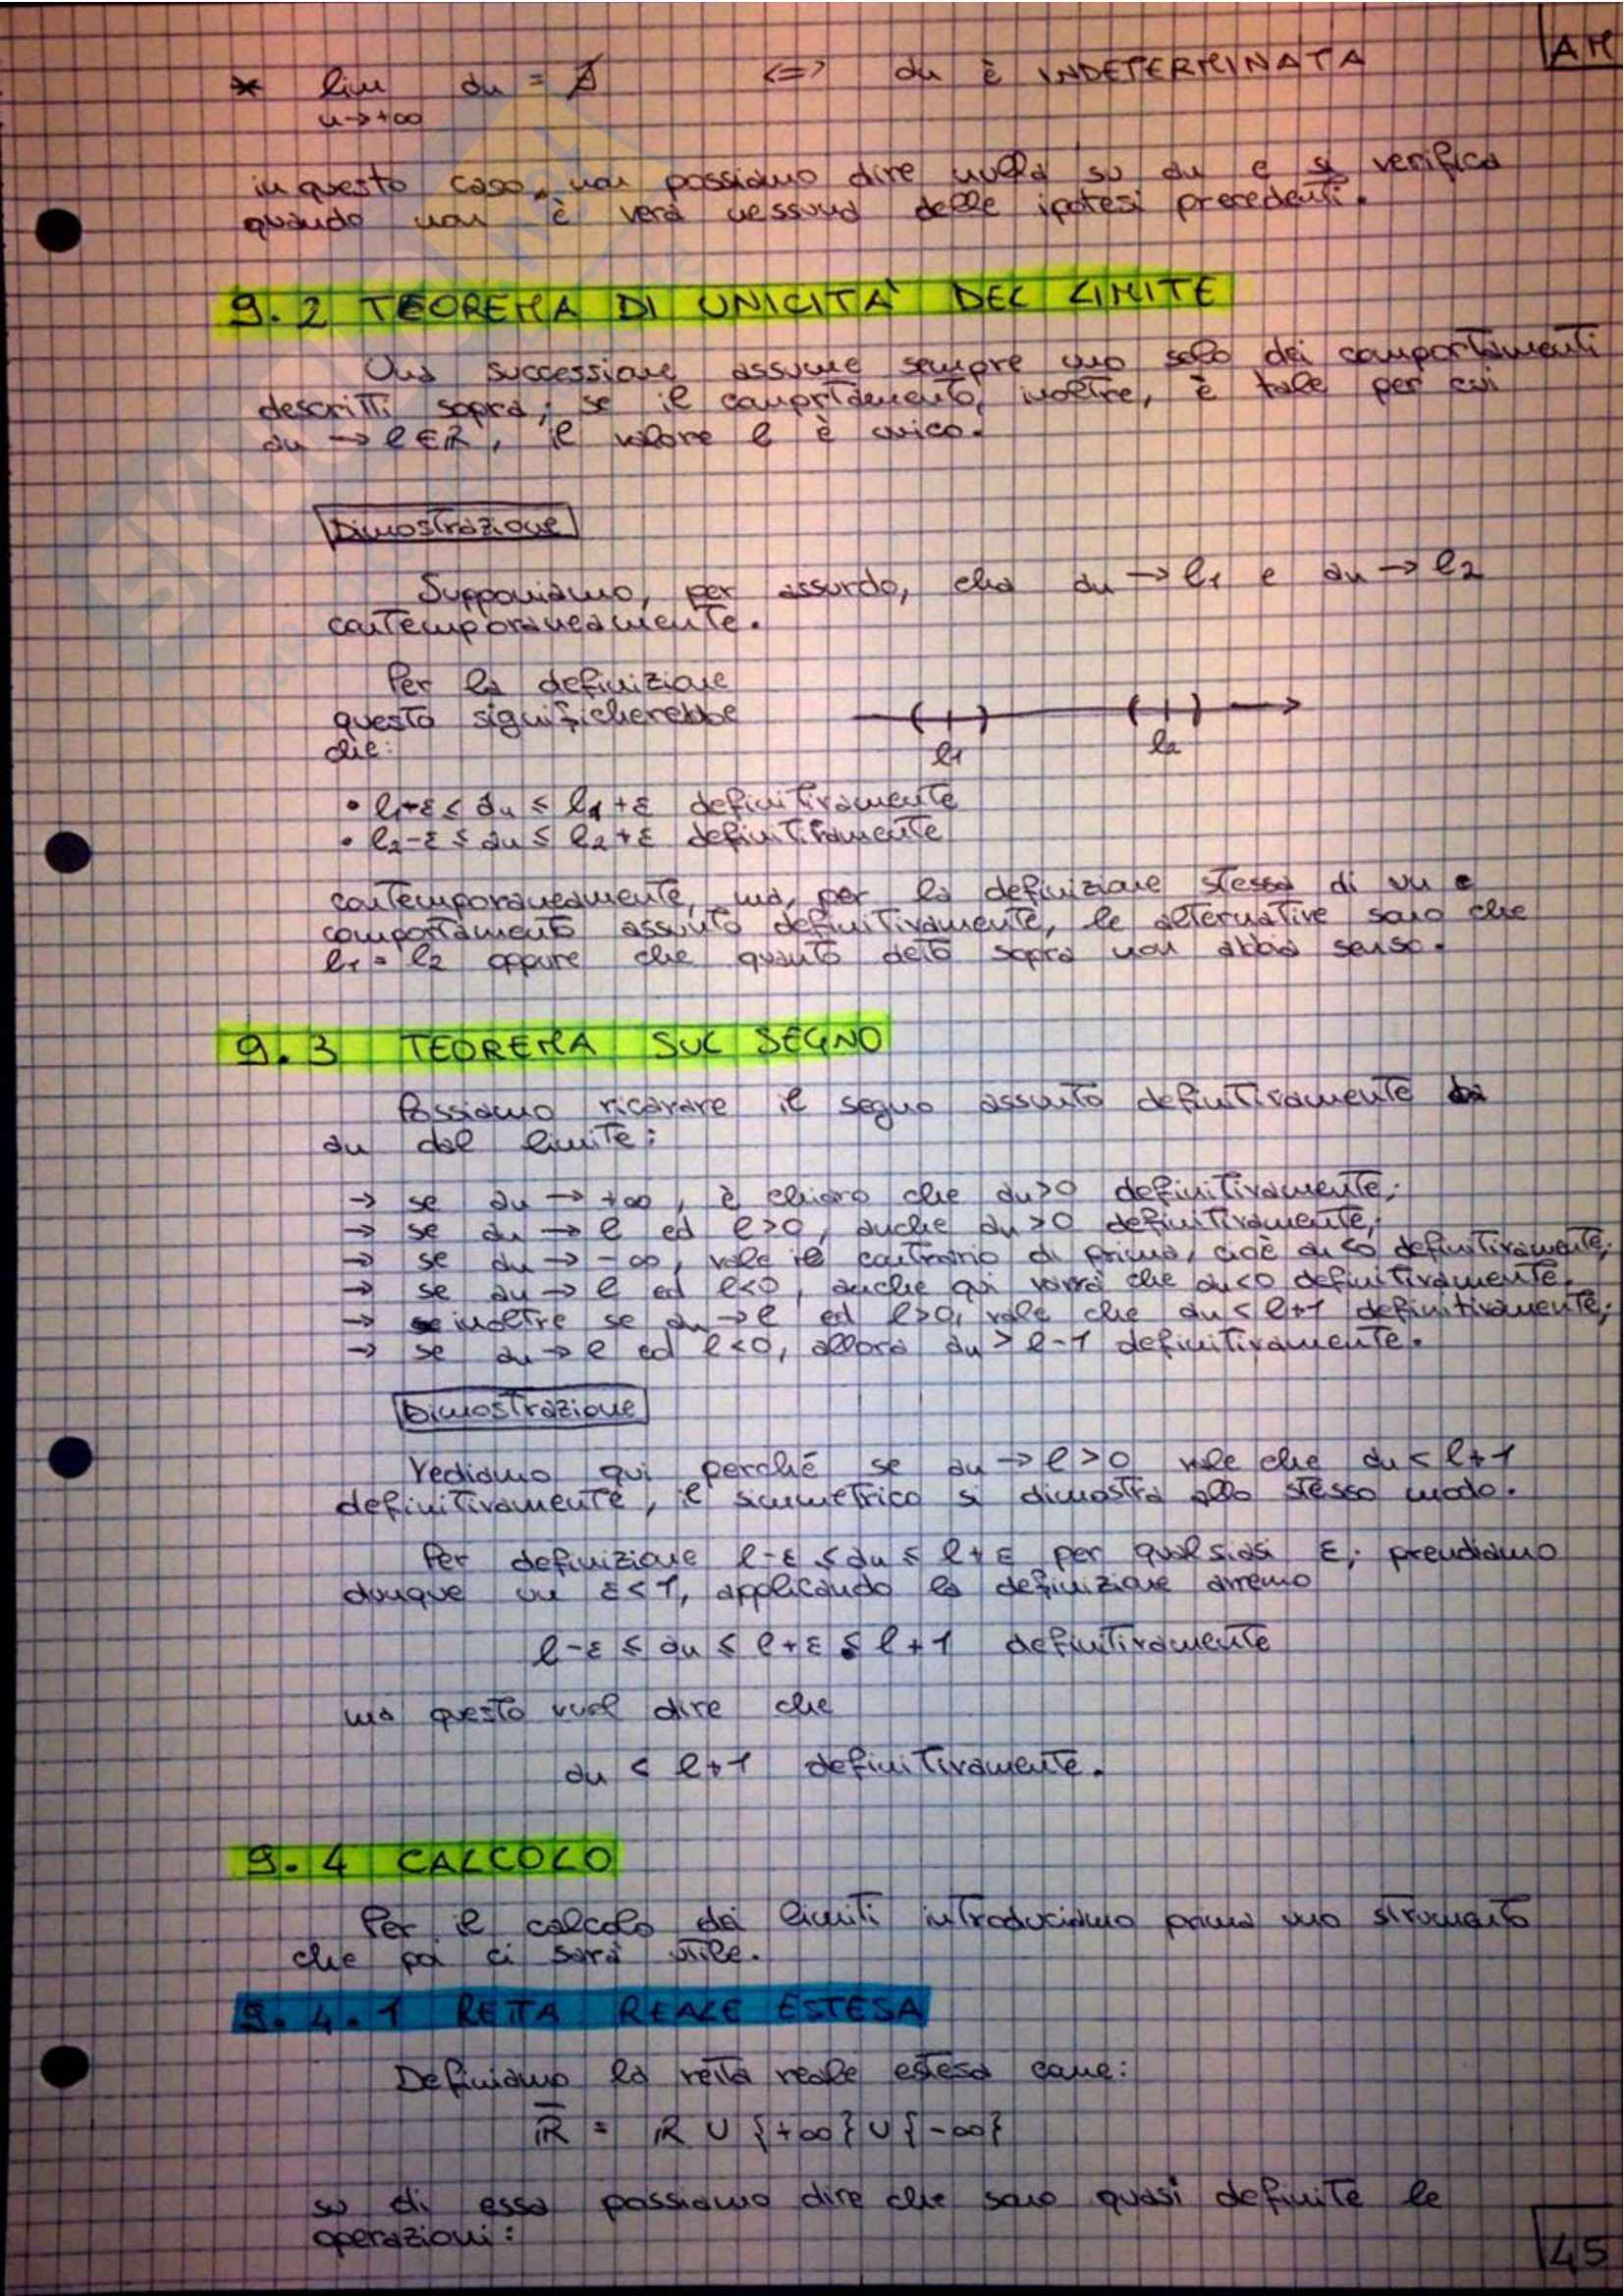 AM
* lim an = ∄ <=> an è INDETERMINATA
n→+∞
in questo caso, non possiamo dire nulla su an e si verifica
quando non è vera nessuna delle ipotesi precedenti.
9.2 TEOREMA DI UNICITA' DEL LIMITE
Una successione assume sempre uno solo dei comportamenti
descritti sopra; se il comportamento, inoltre, è tale per cui
an → l ∈ R, il valore l è unico.
Dimostrazione
Supponiamo, per assurdo, che an → l1 e an → l2
contemporaneamente.
Per la definizione
questo significherebbe
che:
l1 l2
• l1-ε ≤ an ≤ l1+ε definitivamente
• l2-ε ≤ an ≤ l2+ε definitivamente
contemporaneamente, ma, per la definizione stessa di un
comportamento assunto definitivamente, le alternative sono che
l1 = l2 oppure che quanto detto sopra non abbia senso.
9.3 TEOREMA SUL SEGNO
Possiamo ricavare il segno assunto definitivamente da
an dal limite:
→ se an → +∞, è chiaro che an>0 definitivamente;
→ se an → l ed l>0, anche an>0 definitivamente;
→ se an → -∞, vale il contrario di prima, cioè an<0 definitivamente;
→ se an → l ed l<0, anche qui varrà che an<0 definitivamente.
→ inoltre se an → l ed l>0, vale che an < l+1 definitivamente;
→ se an → l ed l<0, allora an > l-1 definitivamente.
Dimostrazione
Vediamo qui perché se an → l>0 vale che an < l+1
definitivamente, il simmetrico si dimostra allo stesso modo.
Per definizione l-ε ≤ an ≤ l+ε per qualsiasi ε; prendiamo
dunque un ε<1, applicando la definizione avremo
l-ε ≤ an ≤ l+ε ≤ l+1 definitivamente
ma questo vuol dire che
an < l+1 definitivamente.
9.4 CALCOLO
Per il calcolo dei limiti introduciamo prima uno strumento
che poi ci sarà utile.
9.4.1 RETTA REALE ESTESA
Definiamo la retta reale estesa come:
R̄ = R ∪ {+∞} ∪ {-∞}
su di essa possiamo dire che sono quasi definite le
operazioni:
45